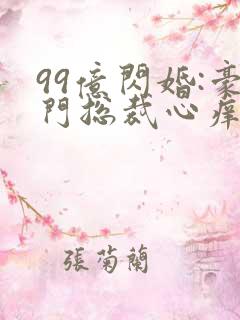 99億閃婚:豪
門总裁心痒
張菊蘭